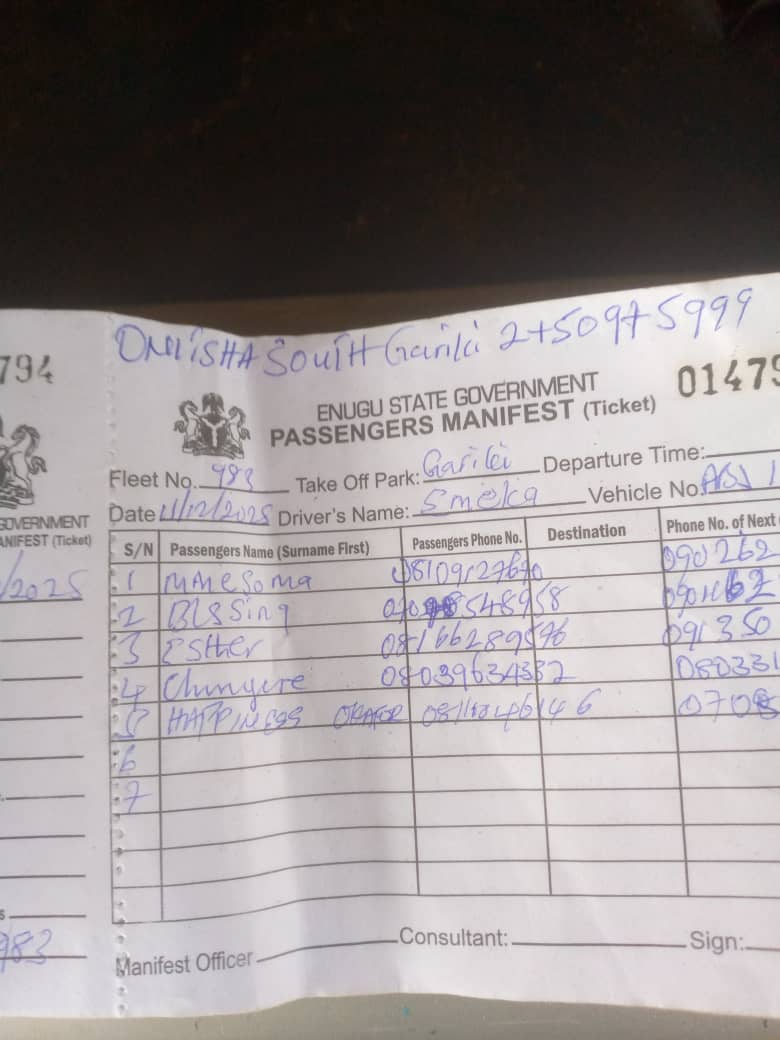 794
GOVERNMENT
MANIFEST (Ticket)
/2025
983
ONITSHA SOUTH Gariki 2+50975999
ENUGU STATE GOVERNMENT
PASSENGERS MANIFEST (Ticket)
01479
Fleet No. 983 Take Off Park: Gariki Departure Time:
Date 11/12/2025 Driver's Name: Emeka Vehicle No.
S/N Passengers Name (Surname First) Passengers Phone No. Destination Phone No. of Next
1 MMESOMA 090262
2 Blssing
3 Esther 091350
4 Chinyere 08039634332 080331
5 HAPPINESS OKAFOR 0708
6
7
Manifest Officer Consultant: Sign: